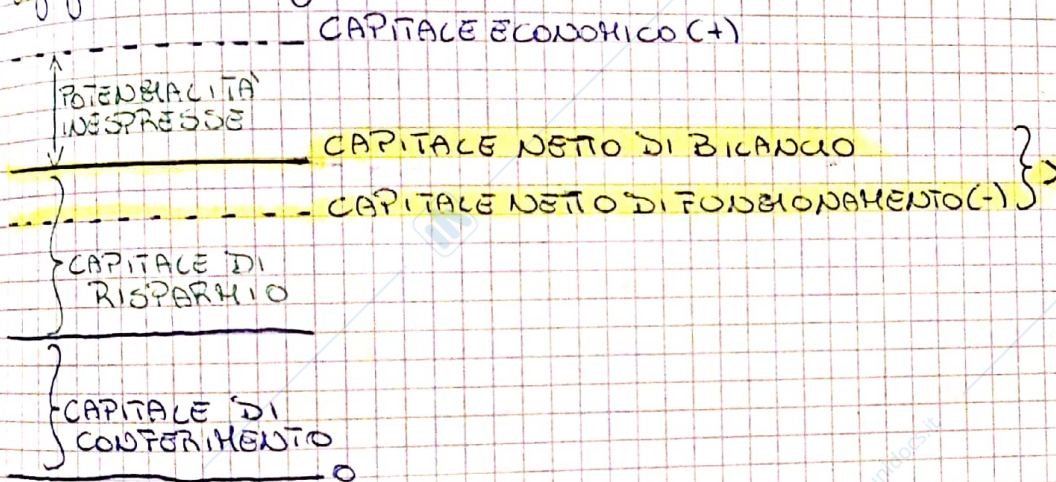 CAPITALE ECONOMICO (+)
POTENZIALITÀ
INESPRESSE
CAPITALE NETTO DI BILANCIO
CAPITALE NETTO DI FUNZIONAMENTO (-)
CAPITALE DI
RISPARMIO
CAPITALE DI
CONFERIMENTO
0
unidocs.it